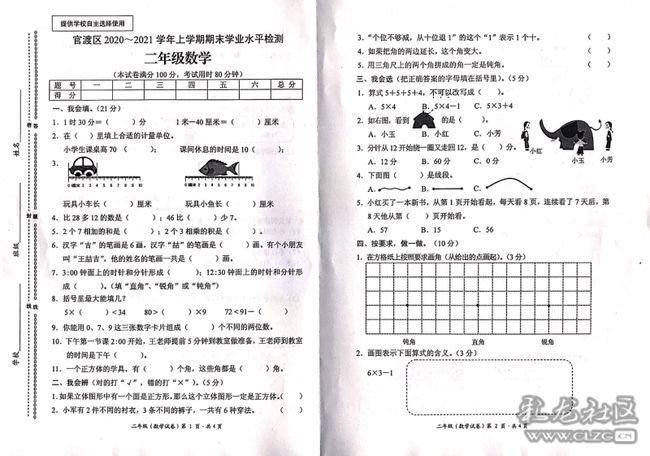 提供学校自主选择使用
官渡区 2020～2021 学年上学期期末学业水平检测
二年级数学
（本试卷满分 100 分，考试用时 80 分钟）
题 号 一 二 三 四 五 六 总 分
得 分
一、我会填。（21 分）
1. 1 时 30 分＝（ ）分 1 米－40 厘米＝（ ）厘米
2. 在（ ）里填上合适的计量单位。
小学生课桌高 70（ ）； 课间休息的时间是 10（ ）；
3.
玩具小车长（ ）厘米 玩具小鱼长（ ）厘米
4. 比 28 多 12 的数是（ ）；46 比（ ）少 7。
5. 2 个 7 相加的和是（ ）；2 个 3 相乘的积是（ ）。
6. 汉字“吉”的笔画是 6 画，汉字“喆”的笔画是（ ）画。有个小朋友
叫“王喆吉”，他的姓名的笔画一共是（ ）画。
7. 3:00 钟面上的时针和分针形成（ ）；12:30 钟面上的时针和分针形
成（ ）。（填“直角”、“锐角”或“钝角”）
8. 括号里最大能填几？
5×（ ）<34 80>（ ）×9 72<91－（ ）
9. 你能用 0、7、9 这三张数字卡片组成（ ）个不同的两位数。
10. 下午第一节课 2:00 开始，王老师提前 5 分钟到教室做准备，王老师到教室
的时间是下午（ ）。
11. 一个正方体的学具，有（ ）个角，这些角都是（ ）角。
二、我会辨（对的打“√”，错的打“×”）。（5 分）
1. 如果立体图形中有一个面是正方形，那么这个立体图形一定是正方体。（ ）
2. 小军有 2 件不同的衬衣，3 条不同的裤子，一共有 6 种穿法。（ ）
二年级（数学试卷）第 1 页 · 共 4 页
姓名
班级
学校
3. “个位不够减，从十位退 1”的这个“1”表示 1 个十。（ ）
4. 如果把角的两边延长，这个角变大。（ ）
5. 用三角尺上的两个角拼成的角一定是钝角。（ ）
三、我会选（把正确答案的字母填在括号里）。（5 分）
1. 算式 5＋5＋5＋4，不可以改写成（ ）。
A. 5×4 B. 5×4－1 C. 5×3＋4
2. 如右图，看到 的是（ ）。
A. 小玉 B. 小红 C. 小芳
小红 小玉 小芳
3. 分针从 12 开始绕一圈又走回 12，是（ ）。
A. 12 分 B. 60 分 C. 12 时
4. 下面图（ ）是线段。
A. B. C.
5. 小红买了一本新书，从第 1 页开始看起，每天看 8 页，连续看了 7 天后，第
8 天他从第（ ）页开始看。
A. 57 B. 15 C. 56
四、按要求，做一做。（10 分）
1. 在方格纸上按照要求画角（从给出的点画起）。（3 分）
钝角 直角 锐角
2. 画图表示下面算式的含义。（3 分）
6×3－1
二年级（数学试卷）第 2 页 · 共 4 页
社区
WWW.CLZG.CN